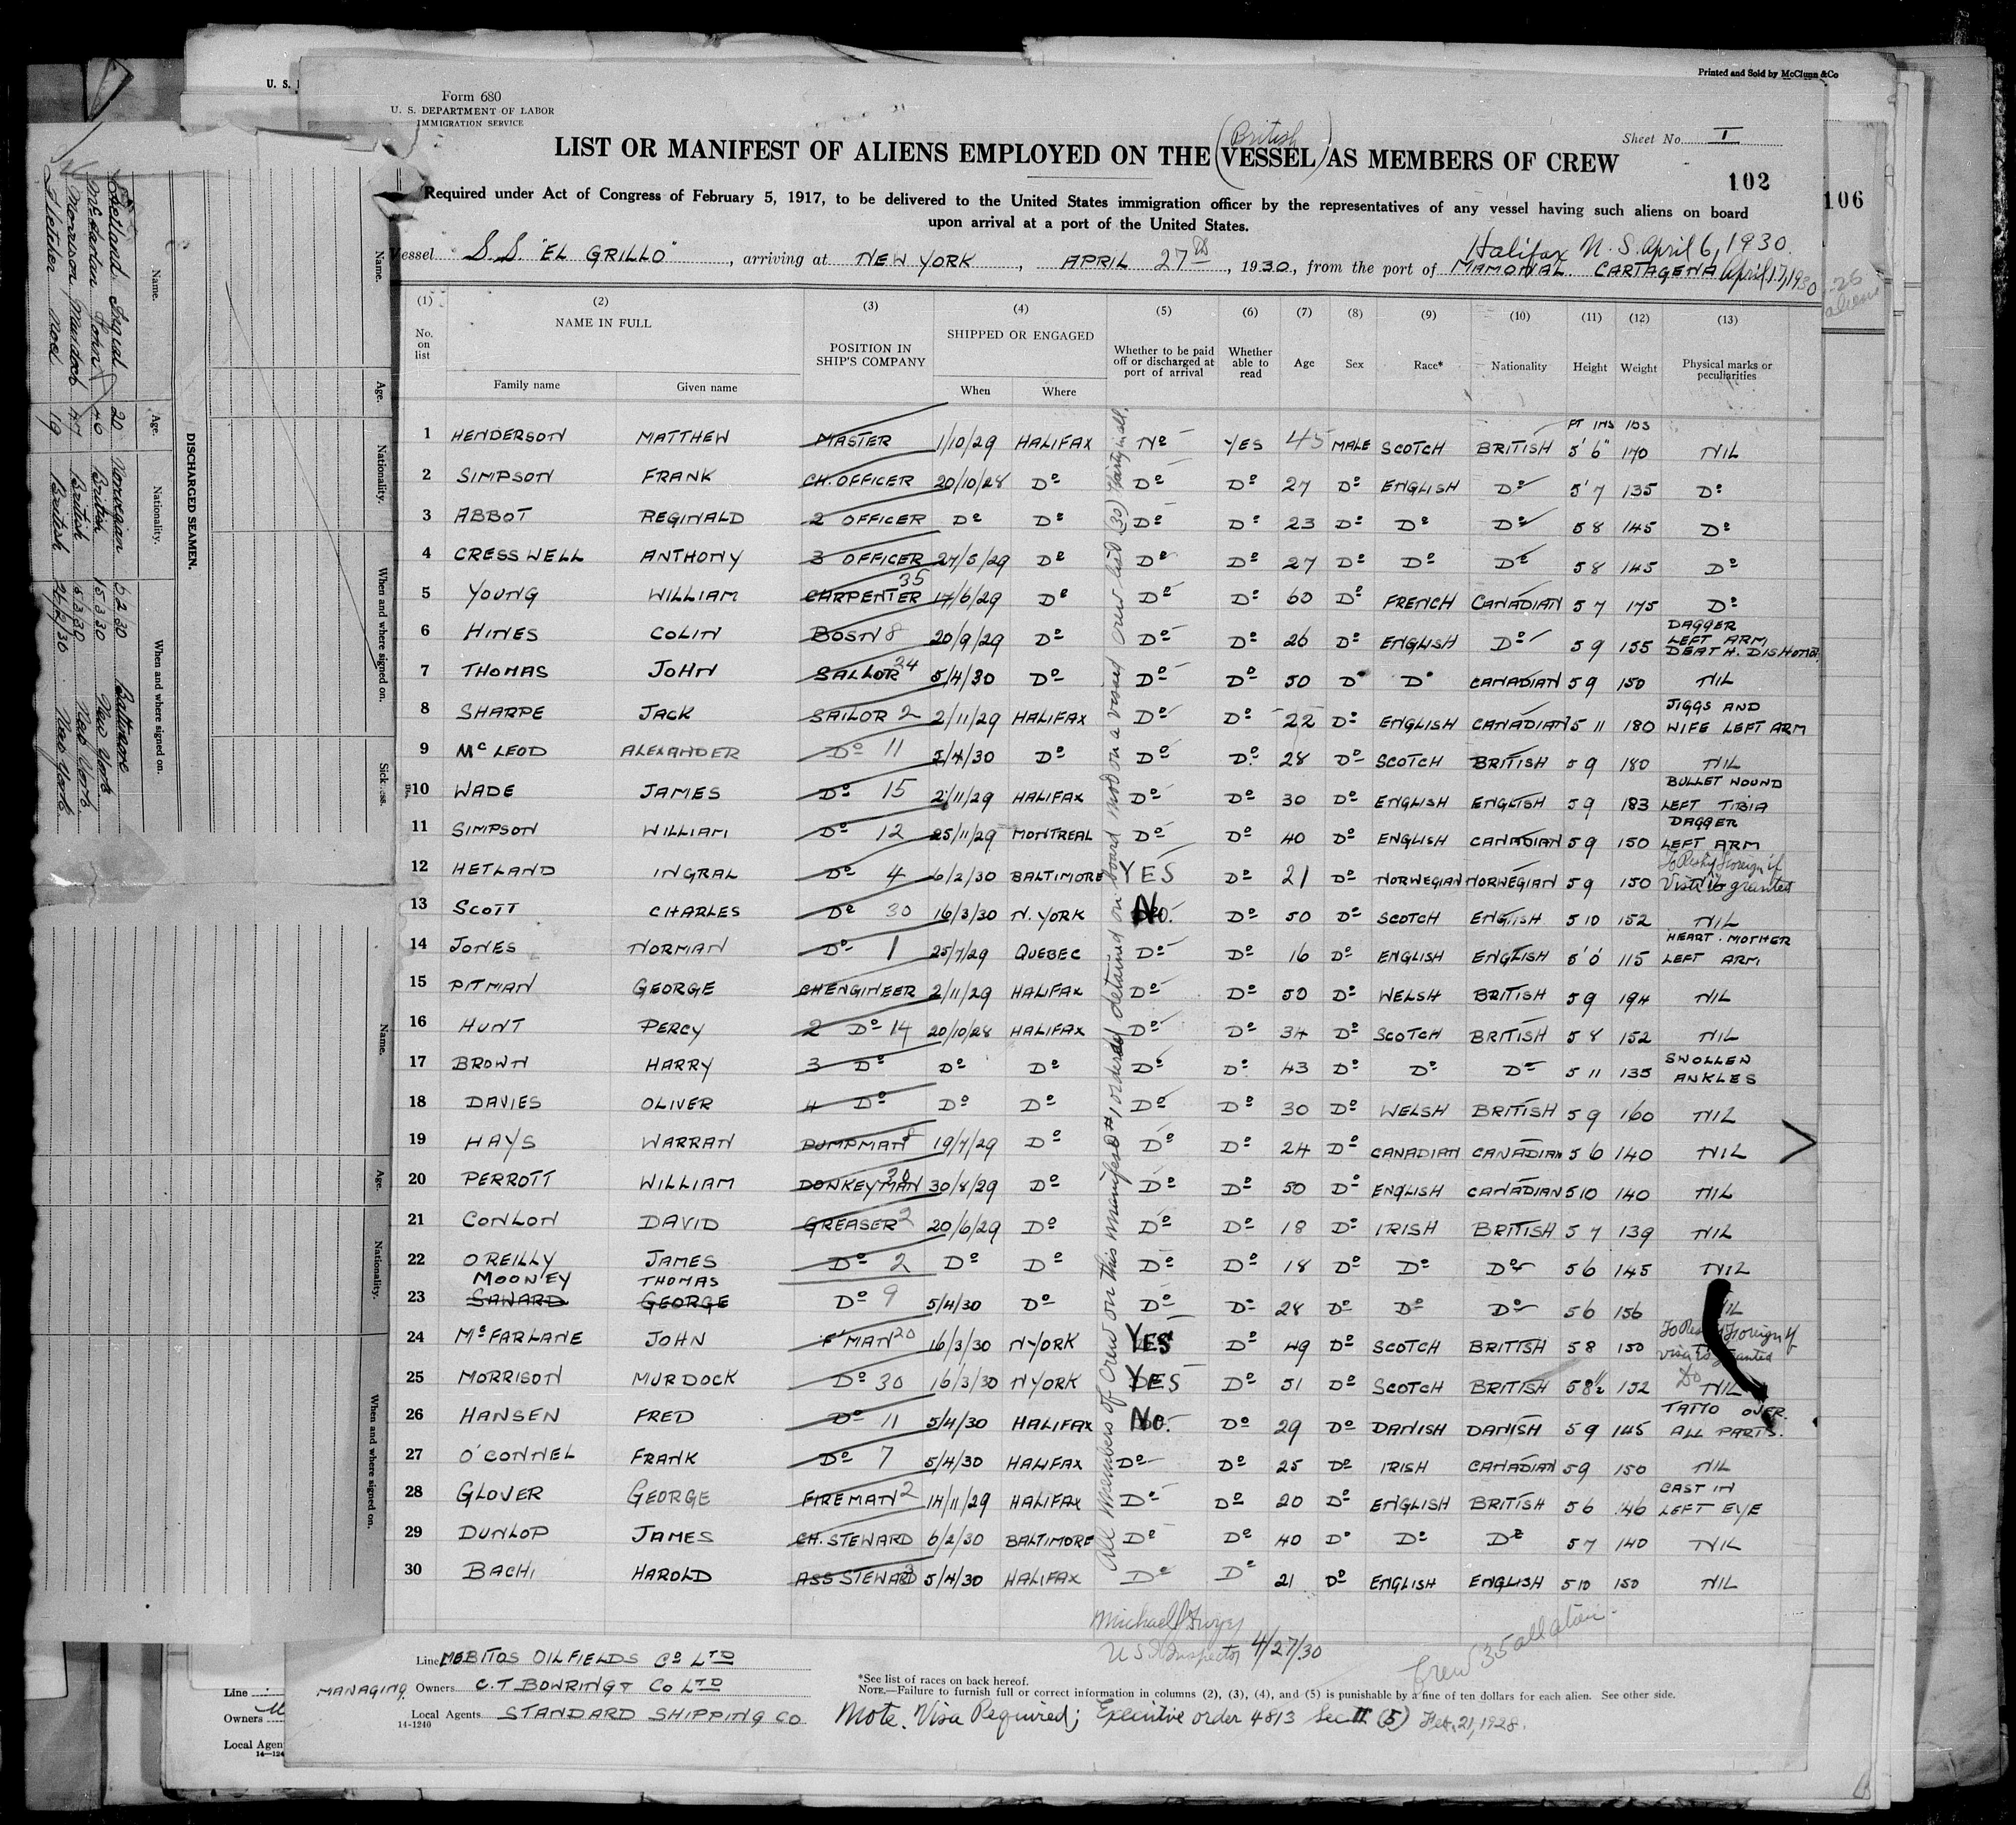 Printed and Sold by McClunn & Co
U. S.
Form 680
U. S. DEPARTMENT OF LABOR
IMMIGRATION SERVICE
(British)
LIST OR MANIFEST OF ALIENS EMPLOYED ON THE VESSEL AS MEMBERS OF CREW
Sheet No. I
102
106
Required under Act of Congress of February 5, 1917, to be delivered to the United States immigration officer by the representatives of any vessel having such aliens on board
upon arrival at a port of the United States.
Halifax N. S. April 6, 1930.
Vessel S.S. "EL GRILLO", arriving at NEW YORK, APRIL 27th, 1930, from the port of MAMONAL CARTAGENA April 17, 1930
26
aliens
(1) (2) (3) (4) (5) (6) (7) (8) (9) (10) (11) (12) (13)
No. on list NAME IN FULL POSITION IN SHIP'S COMPANY SHIPPED OR ENGAGED Whether to be paid off or discharged at port of arrival Whether able to read Age Sex Race* Nationality Height Weight Physical marks or peculiarities
Family name Given name When Where
FT INS LBS
1 HENDERSON MATTHEW MASTER 1/10/29 HALIFAX No YES 45 MALE SCOTCH BRITISH 5' 6" 170 NIL
2 SIMPSON FRANK CH. OFFICER 20/10/28 Do Do Do 27 Do ENGLISH Do 5' 7 135 Do
3 ABBOT REGINALD 2 OFFICER Do Do Do Do 23 Do Do Do 5 8 145 Do
4 CRESSWELL ANTHONY 3 OFFICER 27/5/29 Do Do Do 27 Do Do Do 5 8 145 Do
5 YOUNG WILLIAM CARPENTER 35 17/6/29 Do Do Do 60 Do FRENCH CANADIAN 5 7 175 Do
6 HINES COLIN BOSN 8 20/9/29 Do Do Do 26 Do ENGLISH Do 5 9 155 DAGGER LEFT ARM DEATH. DISHONOR
7 THOMAS JOHN SAILOR 24 5/4/30 Do Do Do 50 Do Do CANADIAN 5 9 150 NIL
8 SHARPE JACK SAILOR 2 2/11/29 HALIFAX Do Do 22 Do ENGLISH CANADIAN 5 11 180 JIGGS AND WIFE LEFT ARM
9 McLEOD ALEXANDER Do 11 5/4/30 Do Do Do 28 Do SCOTCH BRITISH 5 9 180 NIL
10 WADE JAMES Do 15 2/11/29 HALIFAX Do Do 30 Do ENGLISH ENGLISH 5 9 183 BULLET WOUND LEFT TIBIA
11 SIMPSON WILLIAM Do 12 25/11/29 MONTREAL Do Do 40 Do ENGLISH CANADIAN 5 9 150 DAGGER LEFT ARM
12 HETLAND INGRAL Do 4 6/2/30 BALTIMORE YES Do 21 Do NORWEGIAN NORWEGIAN 5 9 150 To Reship Foreign if Visa is granted
13 SCOTT CHARLES Do 30 16/3/30 N. YORK No. Do 50 Do SCOTCH ENGLISH 5 10 152 NIL
14 JONES NORMAN Do 1 25/7/29 QUEBEC Do Do 16 Do ENGLISH ENGLISH 5' 0' 115 HEART. MOTHER LEFT ARM
15 PITMAN GEORGE CHENGINEER 2/11/29 HALIFAX Do Do 50 Do WELSH BRITISH 5 9 194 NIL
16 HUNT PERCY 2 Do 14 20/10/28 HALIFAX Do Do 34 Do SCOTCH BRITISH 5 8 152 NIL
17 BROWN HARRY 3 Do Do Do Do Do 43 Do Do Do 5 11 135 SWOLLEN ANKLES
18 DAVIES OLIVER 4 Do Do Do Do Do 30 Do WELSH BRITISH 5 9 160 NIL
19 HAYS WARRAN PUMPMAN 8 19/7/29 Do Do Do 24 Do CANADIAN CANADIAN 5 6 140 NIL
20 PERROTT WILLIAM DONKEYMAN 28 30/8/29 Do Do Do 50 Do ENGLISH CANADIAN 5 10 140 NIL
21 CONLON DAVID GREASER 2 20/6/29 Do Do Do 18 Do IRISH BRITISH 5 7 139 NIL
22 OREILLY JAMES Do 2 Do Do Do Do 18 Do Do Do 5 6 145 NIL
MOONEY THOMAS
23 SAWARD GEORGE Do 9 5/4/30 Do Do Do 28 Do Do Do 5 6 156 NIL
24 McFARLANE JOHN F'MAN 20 16/3/30 NYORK YES Do 49 Do SCOTCH BRITISH 5 8 150 To Reship Foreign if visa is granted
25 MORRISON MURDOCK Do 30 16/3/30 NYORK YES Do 51 Do SCOTCH BRITISH 5 8½ 152 Do NIL
26 HANSEN FRED Do 11 5/4/30 HALIFAX No. Do 29 Do DANISH DANISH 5 9 145 TATTO OVER. ALL PARTS.
27 O'CONNEL FRANK Do 7 5/4/30 HALIFAX Do Do 25 Do IRISH CANADIAN 5 9 150 NIL
28 GLOVER GEORGE FIREMAN 2 14/11/29 HALIFAX Do Do 20 Do ENGLISH BRITISH 5 6 146 CAST IN LEFT EYE
29 DUNLOP JAMES CH. STEWARD 6/2/30 BALTIMORE Do Do 40 Do Do Do 5 7 140 NIL
30 BACHI HAROLD ASS STEWARD 3 5/4/30 HALIFAX Do Do 21 Do ENGLISH ENGLISH 5 10 150 NIL
All members of Crew on this manifest ordered detained on board not on a visaed crew list (30)
U S Inspector 4/27/30
Crew 35 all alien.
Line LOBITOS OILFIELDS Co LTD
MANAGING Owners C. T BOWRING & Co LTD
Local Agents STANDARD SHIPPING CO
14-1240
*See list of races on back hereof.
NOTE.—Failure to furnish full or correct information in columns (2), (3), (4), and (5) is punishable by a fine of ten dollars for each alien. See other side.
Note. Visa Required; Executive order 4813 Sec II (5) Feb. 21, 1928.
Line
Owners
Local Agen
14-124
DISCHARGED SEAMEN.
Name. Age. Nationality. When and where signed on.
Hetland Ingral 20 Norwegian 6 2 30 Baltimore
McFarlan John 40 British 15 3 30 New York
Morrison Murdock 47 British 15/3/30 New York.
Fletcher Noel 19 British 24/2/30 New York.
Name. Age. Nationality. When and where signed on. Sickness.
Name. Age. Nationality. When and where signed on.